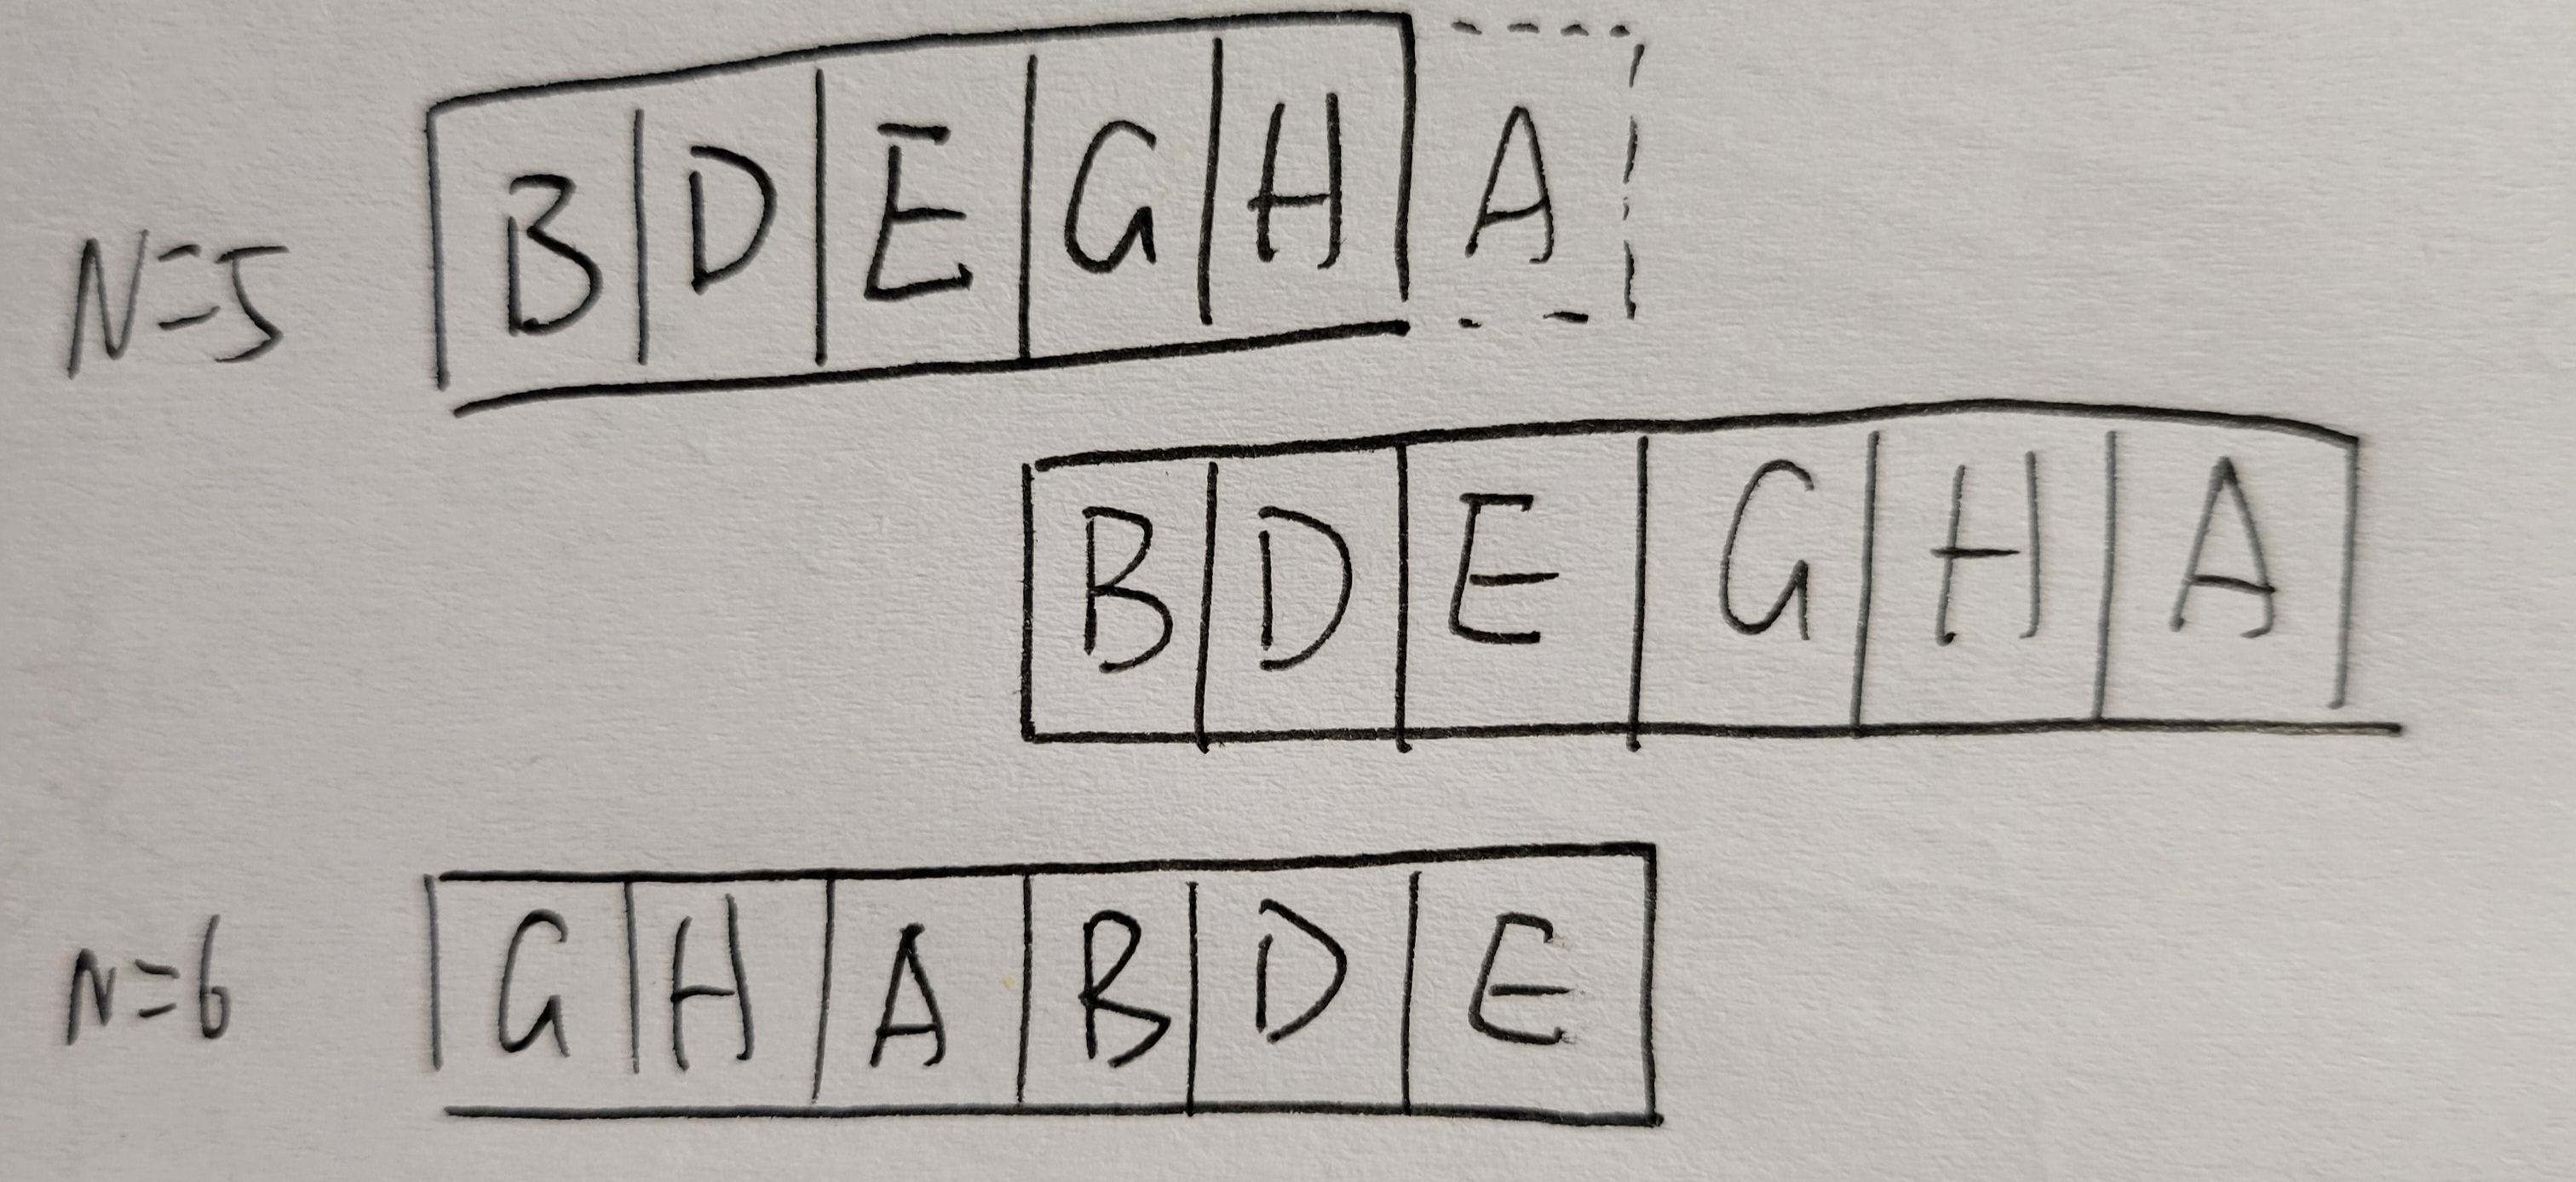 N=5 B D E G H A
B D E G H A
N=6 G H A B D E